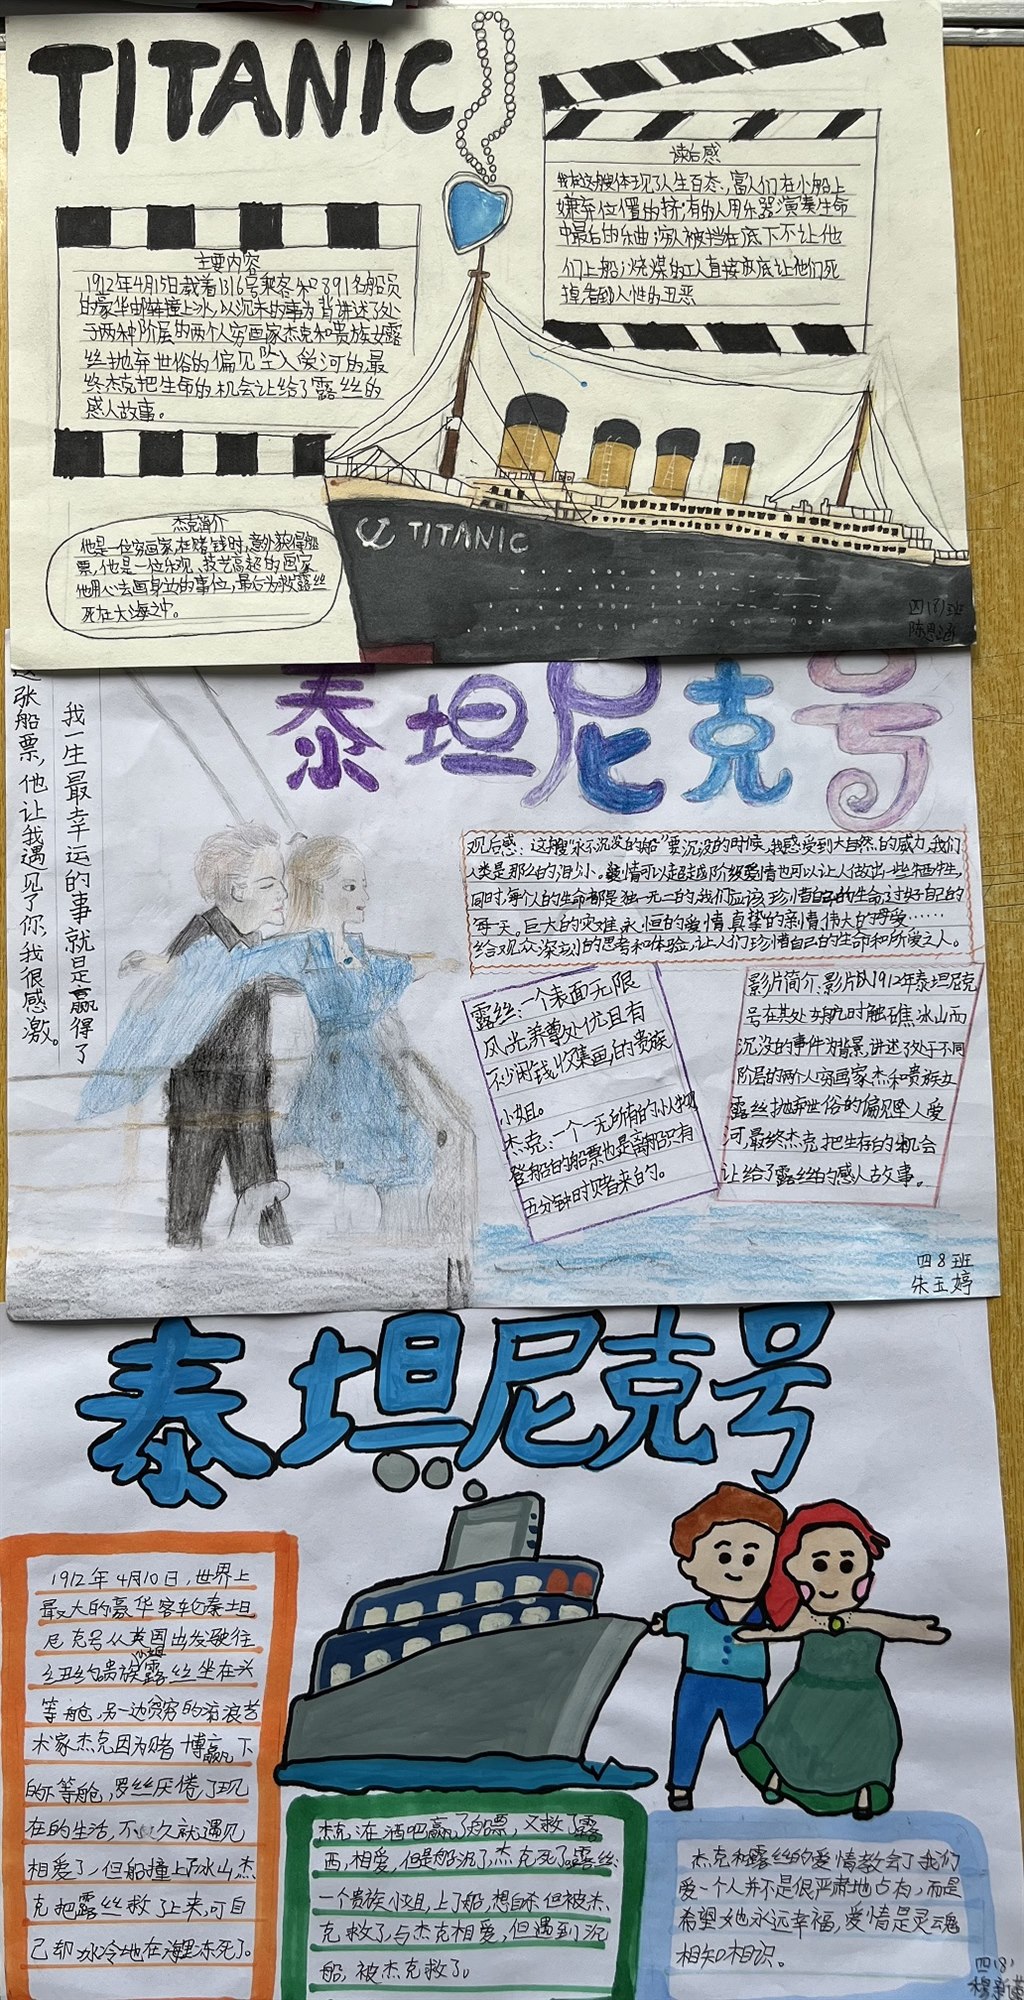 TITANIC
读后感
我在这艘体现了人生百态,富人们在小船上
嫌弃位置的挤,有的人用乐器演奏生命
中最后的乐曲,穷人被挡在底下不让他
们上船,烧煤的工人直接放底让他们死
掉看到人性的丑恶
主要内容
1912年4月15日载着1316号乘客和891名船员
的豪华邮轮撞上冰,以沉没的事为背讲述了处
于两种阶层的两个人穷画家杰克和贵族女露
丝抛弃世俗的偏见坠入爱河的,最
终杰克把生命的机会让给了露丝的
感人故事。
TITANIC
杰克简介
他是一位穷画家,在赌钱时,意外获得船
票,他是一位乐观、技艺高超的画家
他用心去画身边的事位,最后为救露丝
死在大海之中。
四(8)班
陈
泰坦尼克号
我一生最幸运的事就是赢得了
这张船票,他让我遇见了你,我很感激。
观后感:这艘“永不沉没的船”要沉没的时候,我感受到大自然的威力,我们
人类是那么的渺小。爱情可以超越阶级爱情也可以让人做出一些牺牲,
同时,每个人的生命都是独一无二的,我们应该珍惜自己的生命过好自己的
每一天。巨大的灾难,永恒的爱情,真挚的亲情,伟大的母爱……
给观众深刻的思考和体验,让人们珍惜自己的生命和所爱之人。
露丝:一个表面无限
风光,养尊处优且有
不少闲钱收集画的贵族
小姐。
杰克:一个一无所有的小人物
登船的船票也是离船只有
五分钟时赌来的。
影片简介:影片以1912年泰坦尼克
号在其处女航时触礁冰山而
沉没的事件为背景,讲述了处于不同
阶层的两个人穷画家杰和贵族女
露丝抛弃世俗的偏见坠人爱
河,最终杰克把生存的机会
让给了露丝的感人故事。
四8班
朱玉婷
泰坦尼克号
1912年4月10日,世界上
最大的豪华客轮泰坦
尼克号从英国出发驶往
纽约贵族小姐露丝坐在头
等舱,另一边贫穷的流浪艺
术家杰克因为赌博赢下
的下等舱,罗丝厌倦了现
在的生活,不久就遇见
相爱了,但船撞上了冰山,杰
克把露丝救了上来,可自
己却冰冷地在海里冻死了。
杰克:在酒吧赢了船票,又救了露
西,相爱,但是船沉了,杰克死了露丝:
一个贵族小姐,上了船,想自杀但被杰
克救了,与杰克相爱,但遇到沉
船,被杰克救了。
杰克和露丝的爱情教会了我们
爱一个人并不是很严肃地占有,而是
希望她永远幸福,爱情是灵魂
相知相识。
四(8)
穆新